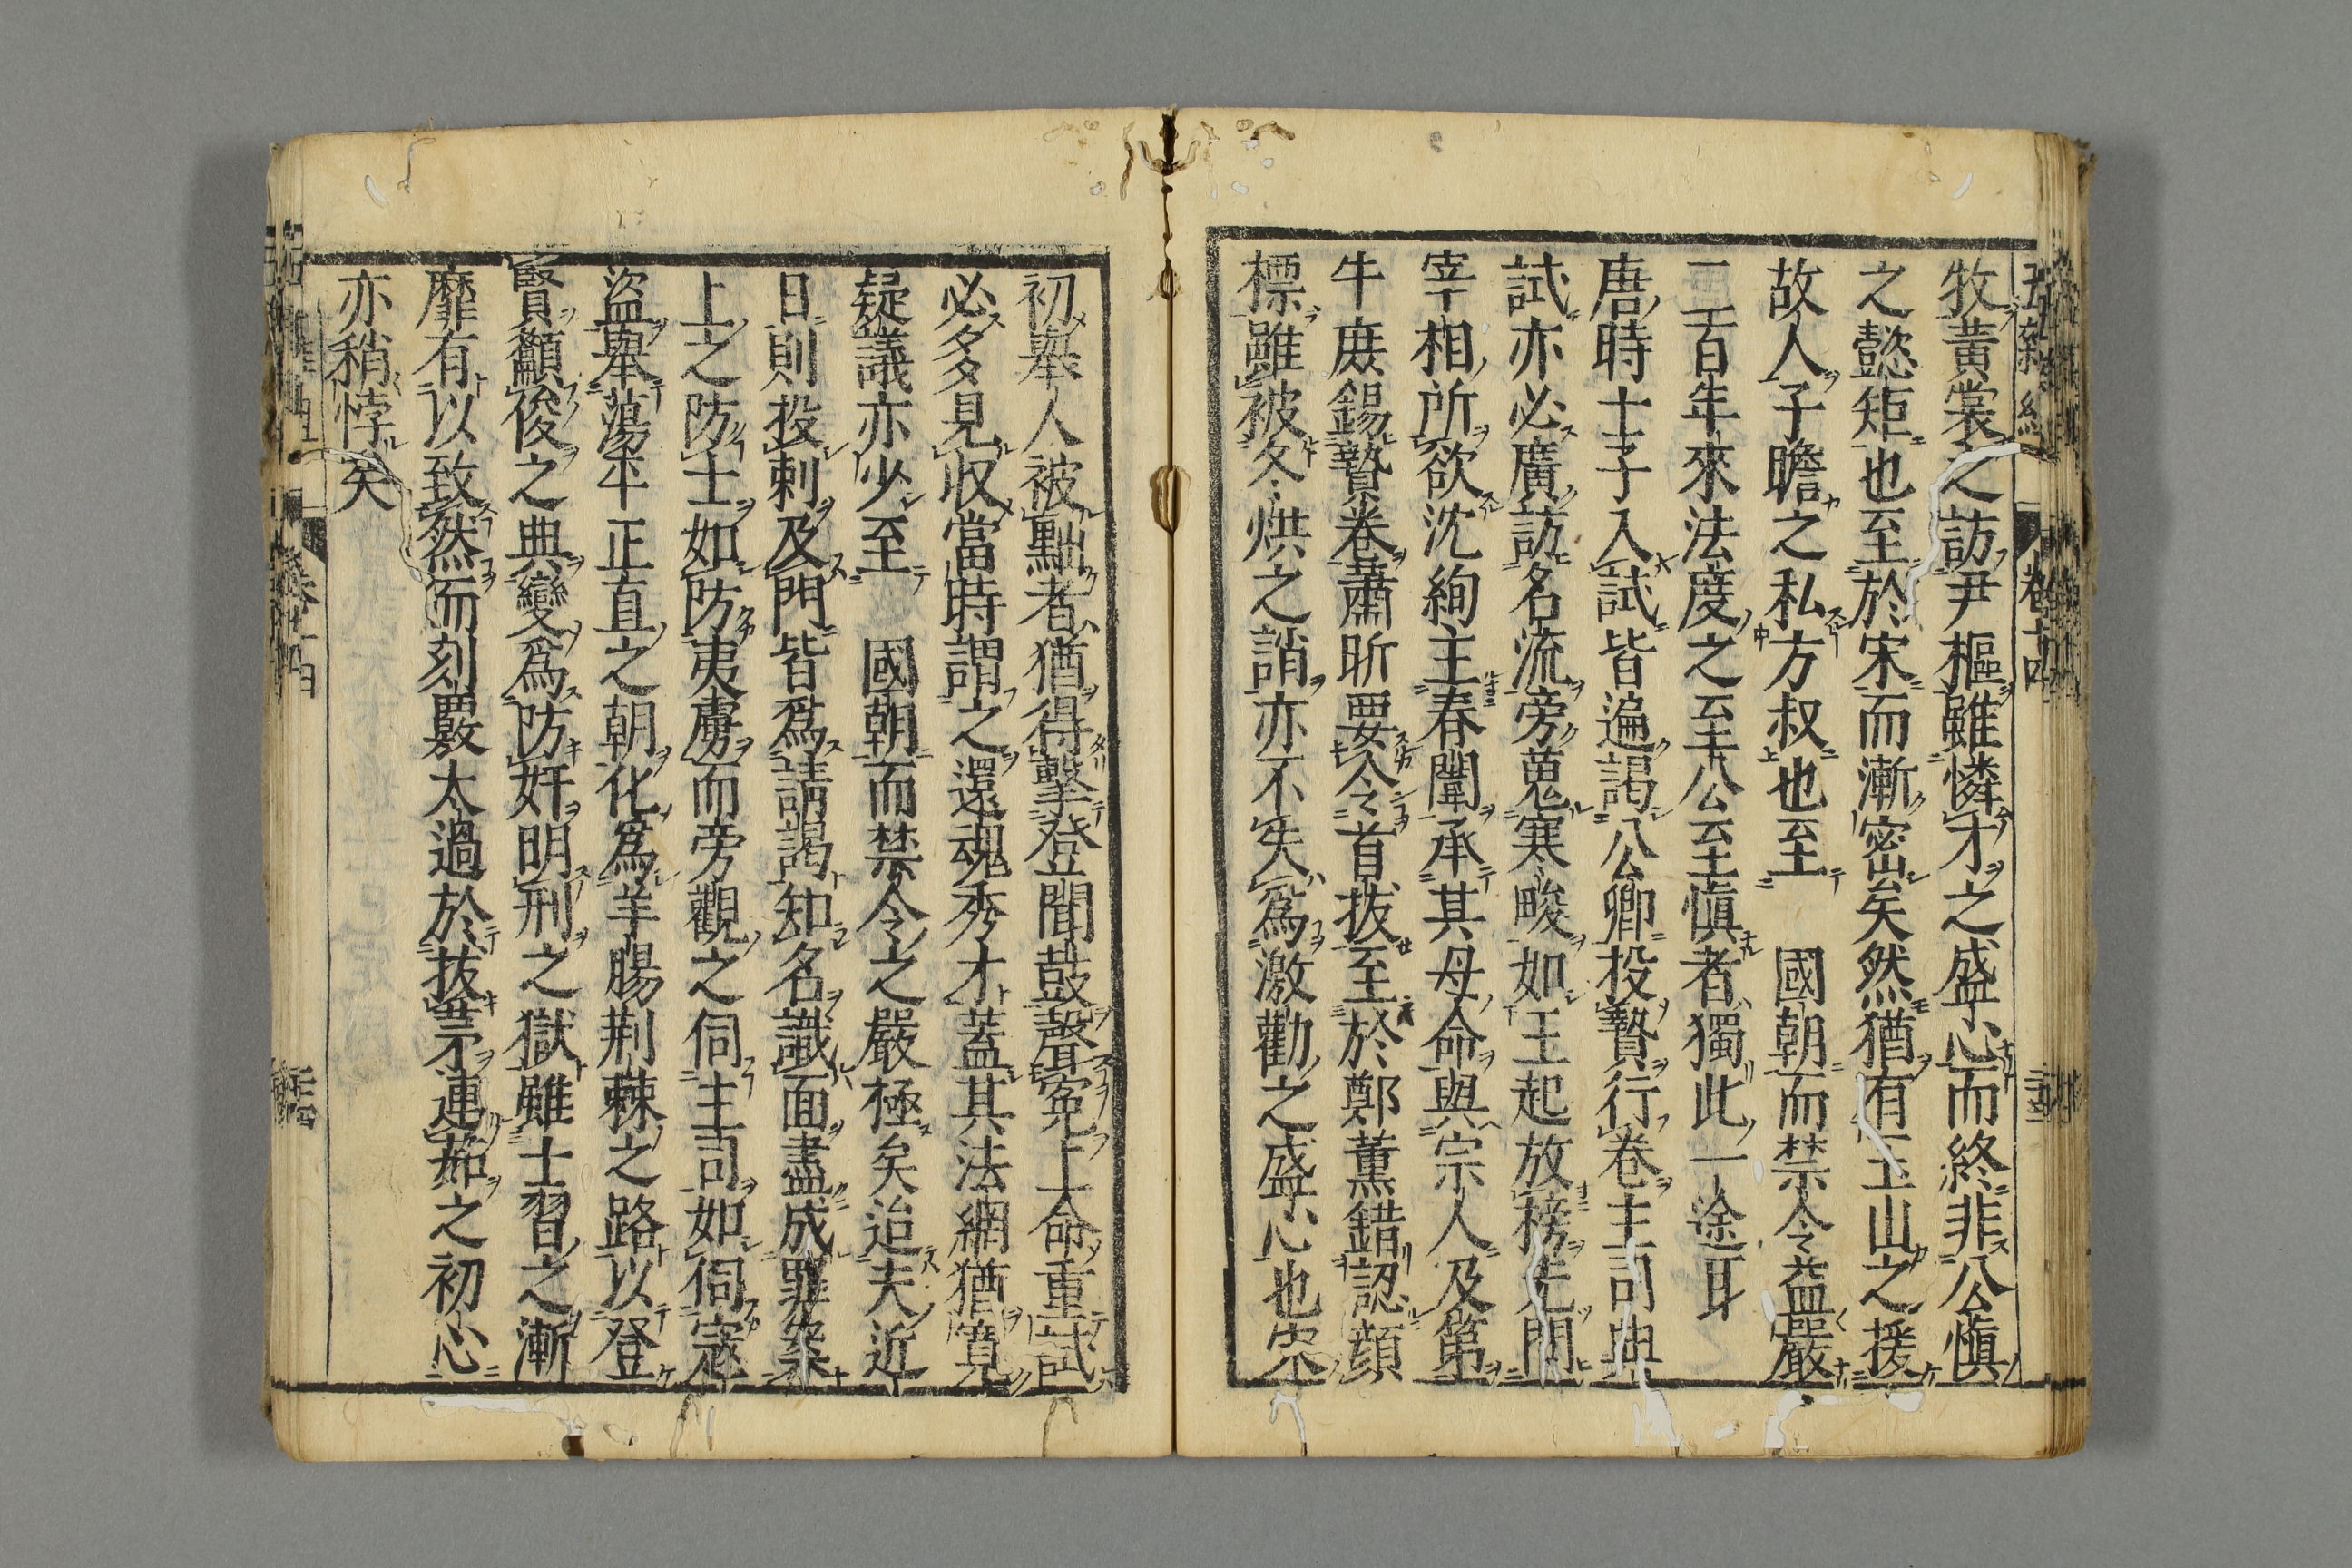 牧黃裳之訪尹樞雖憐才之盛心而終非公慎
之懿矩也至於宋而漸密矣然猶有玉山之援
故人子瞻之私方叔也至　國朝而禁令益嚴
二百年來法度之至公至慎者獨此一途耳
唐時士子入試皆遍謁公卿投贄行卷主司典
試亦必廣訪名流旁蒐寒畯如王起放榜先問
宰相所欲沈絢主春闈承其母命與宗人及第
牛庶錫贄卷蕭昕要令首拔至於鄭薰錯認顔
標雖被冬烘之誚亦不失爲激勸之盛心也宋
初舉人被黜者猶得擊登聞鼓聲寃上命重試
必多見収當時謂之還魂秀才蓋其法網猶寬
疑議亦少至　國朝而禁令之嚴極矣迨夫近
日則投刺及門皆爲請謁知名識面盡成罪案
上之防士如防夷虜而旁觀之伺主司如伺寇
盜舉蕩平正直之朝化爲羊腸荆棘之路以登
賢籲俊之典變爲防奸明刑之獄雖士習之漸
靡有以致然而刻覈太過於拔茅連茹之初心
亦稍悖矣